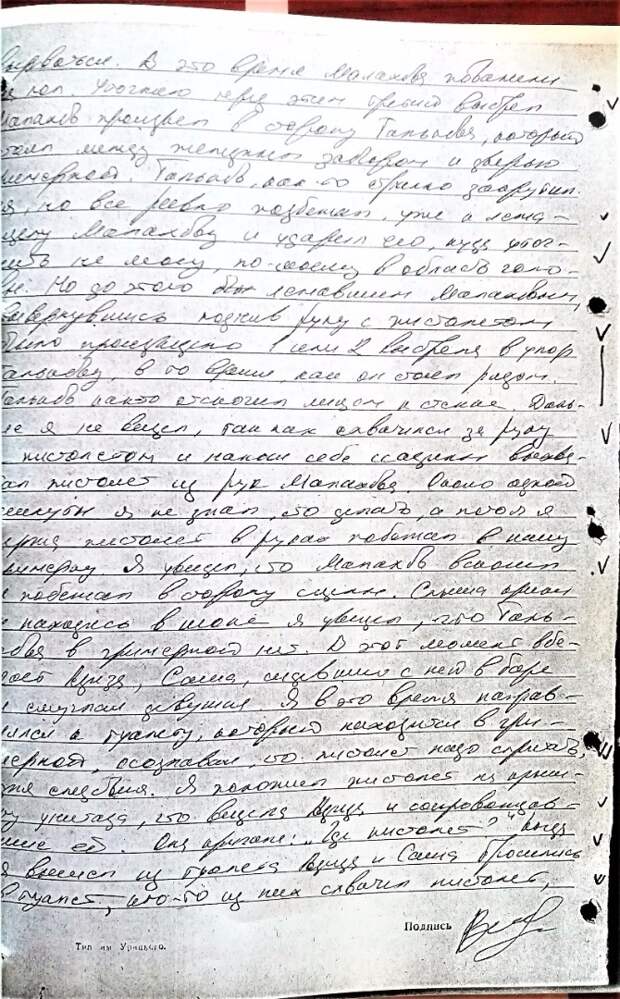 вырваться. В это время Малахова повалили
на пол. Уточняю перед этим третий выстрел
Малахов произвел в сторону Талькова, который
стоял между женским забором и дверью
гримерной. Тальков, как-то странно
ся, но все равно подбежал, уже к лежа-
щему Малахову и ударил его, куда уточ-
нить не могу, по-моему в область голо-
вы. Но до этого был лежавшим Малаховым,
вывернувшись поднив руку с пистолетом
было произведено 1 или 2 выстрела в упор
Талькову, в то время, как он стоял рядом.
Тальков как-то отскочил лицом к стене. Даль-
ше я не видел, так как схватился за руку
с пистолетом и нанося себе ссадины выхва-
тил пистолет из рук Малахова. Около одной
минуты я не знал, что делать, а потом я
держа пистолет в руках побежал в нашу
гримерную. Я увидел, что Малахов вскочил
и побежал в сторону сцены. Слыша крики
и находясь в шоке я увидел, что Таль-
кова в гримерной нет. В этот момент вбе-
гает Азиза, Саша, сидевший с ней в баре
и смуглая девушка. Я в это время направ-
лялся к туалету, который находится в гри-
мерной, осознавая, что пистолет надо спрятать,
для следствия. Я положил пистолет на крыш-
ку унитаза, это видела Азиза и сопровождав-
шие её. Она кричала: „Где пистолет?" Когда
я вышел из туалета Азиза и Саша бросились
в туалет, кто-то из них схватил пистолет,
Подпись
Тип им Урицкого.